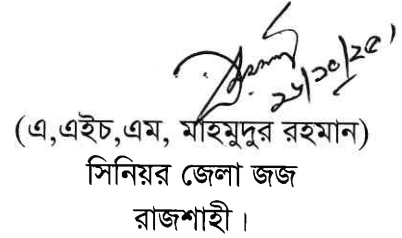 ২৬/১০/২৫
(এ,এইচ,এম, মাহমুদুর রহমান)
সিনিয়র জেলা জজ
রাজশাহী।